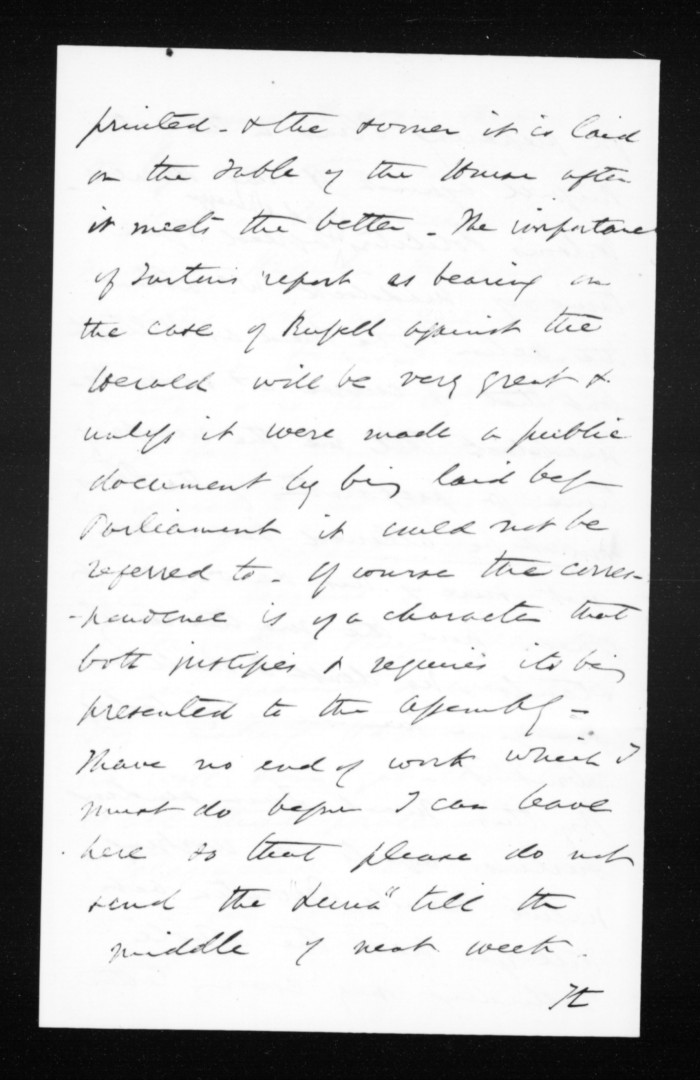 printed - & the sooner it is laid
on the Table of the House after
it meets the better - The importance
of Turton's report as bearing on
the case of Russell against the
Herald will be very great &
unless it were made a public
document by being laid before
Parliament it could not be
referred to - Of course the corres-
-pondence is of a character that
both justifies & requires its being
presented to the Assembly -
I have no end of work which I
must do before I can leave
here so that please do not
send the "Luna" till the
middle of next week.